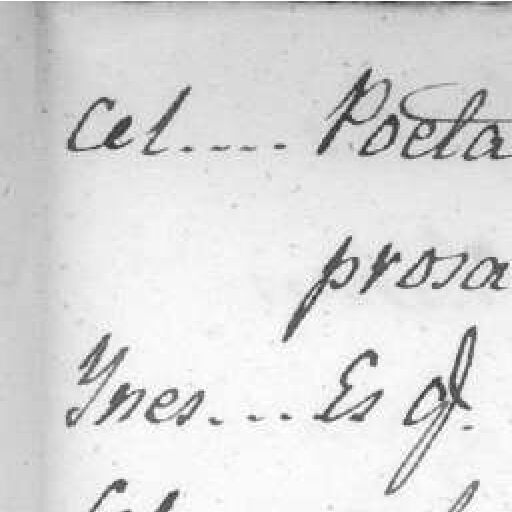 Cel..... Poeta
prosa
Ynes.... Es q.